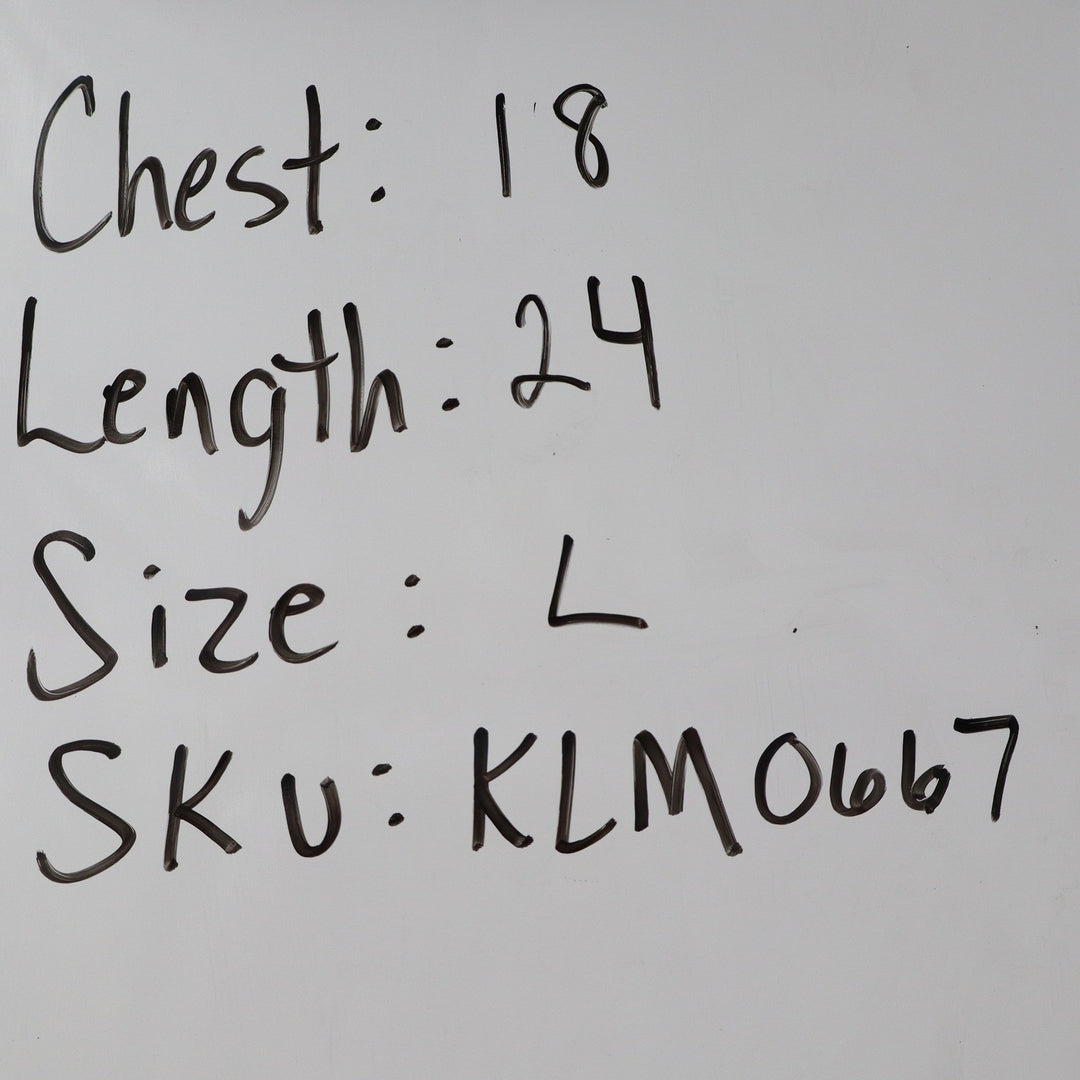 Chest: 18
Length: 24
Size: L
SKU: KLM0667